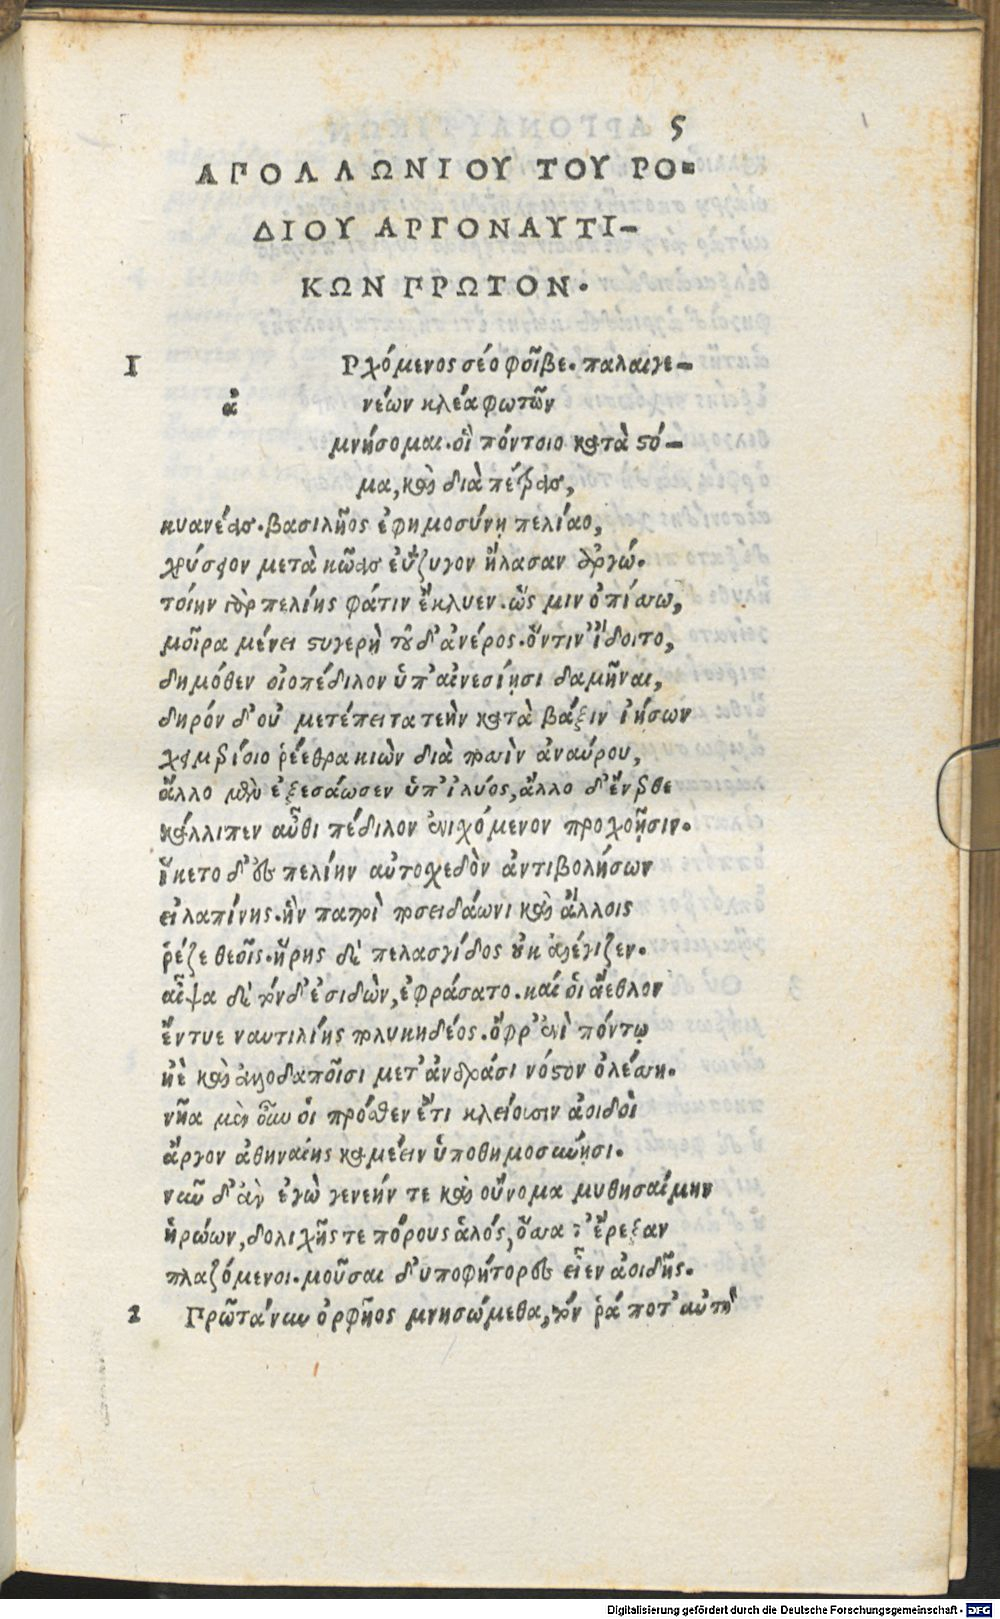 5
ΑΠΟΛΛΩΝΙΟΥ ΤΟΥ ΡΟ-
ΔΙΟΥ ΑΡΓΟΝΑΥΤΙ-
ΚΩΝ ΠΡΩΤΟΝ.
1 Ρχόμενος σέο φοῖβε. παλαιγε-
ἀ νέων κλέα φωτῶν
μνήσομαι. οἳ πόντοιο κατὰ στό-
μα, καὶ διὰ πέτρας,
κυανέας. βασιλῆος ἐφημοσύνῃ πελίαο,
χρύσειον μετὰ κῶας ἐΰζυγον ἤλασαν ἀργώ.
τοίην γὰρ πελίης φάτιν ἔκλυεν. ὥς μιν ὀπίσσω,
μοῖρα μένει στυγερὴ τοῦδ' ἀνέρος. ὅντιν' ἴδοιτο,
δημόθεν οἰοπέδιλον ὑπ' αἰνεσίῃσι δαμῆναι,
δηρόν δ' οὐ μετέπειτα τεὴν κατὰ βάξιν ἰήσων
χειμβίσιο ῥέεθρα κιὼν διὰ ποσσὶν ἀναύρου,
ἄλλο μὲν ἐξεσάωσεν ὑπ' ἰλύος, ἄλλο δ' ἔνερθε
κάλλιπεν αὖθι πέδιλον ἐνισχόμενον προχοῇσιν.
ἵκετο δ' ἐς πελίην αὐτοσχεδὸν ἀντιβολήσων
εἰλαπίνης. ἣν πατρὶ ποσειδάωνι καὶ ἄλλοις
ῥέζε θεοῖς. ἥρης δὲ πελασγίδος οὐκ ἀλέγιζεν.
αἶψα δὲ τόνδ' ἐσιδὼν, ἐφράσατο. καί οἱ ἄεθλον
ἔντυε ναυτιλίης πολυκηδέος. ὄφρ' ἐνὶ πόντῳ
ἠὲ καὶ ἀλλοδαποῖσι μετ' ἀνδράσι νόστον ὀλέσσῃ.
νῆα μὲν οὖν οἱ πρόσθεν ἔτι κλείουσιν ἀοιδοὶ
ἄργον ἀθηναίης καμέειν ὑποθημοσύνῃσι.
νῦν δ' ἂν ἐγὼ γενεήν τε καὶ οὔνομα μυθησαίμην
ἡρώων, δολιχῆς τε πόρους ἁλός, ὅσσα τ' ἔρεξαν
πλαζόμενοι. μοῦσαι δ' ὑποφήτορες εἶεν ἀοιδῆς.
2 Πρῶτά νυν ὀρφῆος μνησώμεθα, τόν ῥά ποτ' αὐτὴ